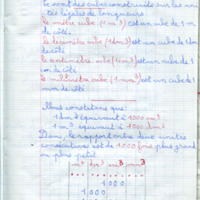 Ce sont des cubes construits sur les uni
tés légales de longueurs.
Le mètre cube (1 m³) est un cube de 1 m
de côté.
Le décimètre cube (1 dm³) est un cube de 1 dm
de côté
Le centimètre cube (1 cm³) est un cube de 1
cm de côté.
Le millimètre cube (1 mm³) est un cube de 1
mm de côté
Nous constatons que :
1 dm³ équivaut à 1000 cm³
1 m³ équivaut à 1000 dm³
Donc, le rapport entre deux unités
consécutives est de 1000 fois plus grand
ou plus petit.
m³ dm³ cm³ mm³
1 0 0 0
1 0 0 0